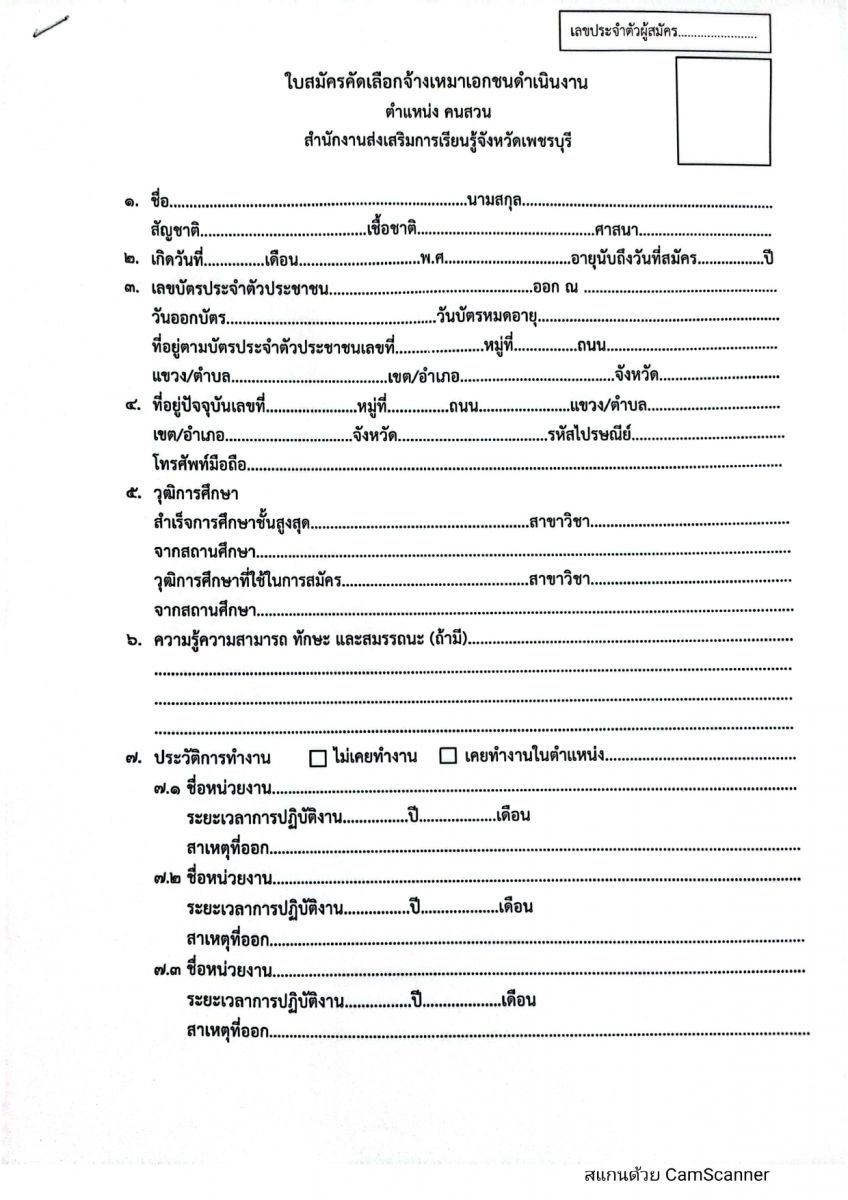 เลขประจำตัวผู้สมัคร........................
ใบสมัครคัดเลือกจ้างเหมาเอกชนดำเนินงาน
ตำแหน่ง คนสวน
สำนักงานส่งเสริมการเรียนรู้จังหวัดเพชรบุรี
๑. ชื่อ....................................................................นามสกุล..........................................................
สัญชาติ.......................................เชื้อชาติ..........................................ศาสนา...............................
๒. เกิดวันที่..............เดือน............................พ.ศ..............................อายุนับถึงวันที่สมัคร...............ปี
๓. เลขบัตรประจำตัวประชาชน...............................................ออก ณ .............................................
วันออกบัตร.................................................วันบัตรหมดอายุ........................................................
ที่อยู่ตามบัตรประจำตัวประชาชนเลขที่.....................หมู่ที่...............ถนน........................................
แขวง/ตำบล....................................เขต/อำเภอ....................................จังหวัด............................
๔. ที่อยู่ปัจจุบันเลขที่.....................หมู่ที่..............ถนน.....................แขวง/ตำบล...............................
เขต/อำเภอ..............................จังหวัด...................................รหัสไปรษณีย์...................................
โทรศัพท์มือถือ............................................................................................................................
๕. วุฒิการศึกษา
สำเร็จการศึกษาชั้นสูงสุด...................................................สาขาวิชา..............................................
จากสถานศึกษา...........................................................................................................................
วุฒิการศึกษาที่ใช้ในการสมัคร...........................................สาขาวิชา..............................................
จากสถานศึกษา...........................................................................................................................
๖. ความรู้ความสามารถ ทักษะ และสมรรถนะ (ถ้ามี)...........................................................................
....................................................................................................................................................
....................................................................................................................................................
....................................................................................................................................................
๗. ประวัติการทำงาน ☐ ไม่เคยทำงาน ☐ เคยทำงานในตำแหน่ง............................................
๗.๑ ชื่อหน่วยงาน.........................................................................................................................
ระยะเวลาการปฏิบัติงาน...............ปี..................เดือน
สาเหตุที่ออก...........................................................................................................................
๗.๒ ชื่อหน่วยงาน.........................................................................................................................
ระยะเวลาการปฏิบัติงาน...............ปี..................เดือน
สาเหตุที่ออก...........................................................................................................................
๗.๓ ชื่อหน่วยงาน.........................................................................................................................
ระยะเวลาการปฏิบัติงาน...............ปี..................เดือน
สาเหตุที่ออก...........................................................................................................................
สแกนด้วย CamScanner